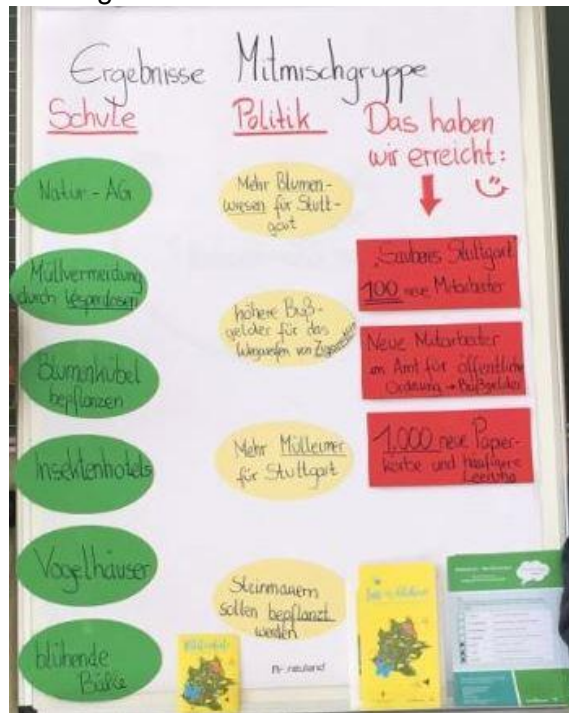 Ergebnisse Mitmischgruppe
Schule
Natur-AG
Müllvermeidung
durch Vesperdosen
Blumenkübel
bepflanzen
Insektenhotels
Vogelhäuser
blühende
Politik
Mehr Blumen-
wiesen für Stutt-
gart
höhere Buß-
gelder für das
Wegwerfen von
Mehr Mülleimer
für Stuttgart
Steinmauern
sollen bepflanzt
werden
neuland
Das haben
wir erreicht:
Sauberes Stuttgart
100 neue Mitarbeiter
Neue Mitarbeiter
im Amt für öffentliche
Ordnung → Bußgelder
1.000 neue Papier-
körbe und häufigere
Leerung